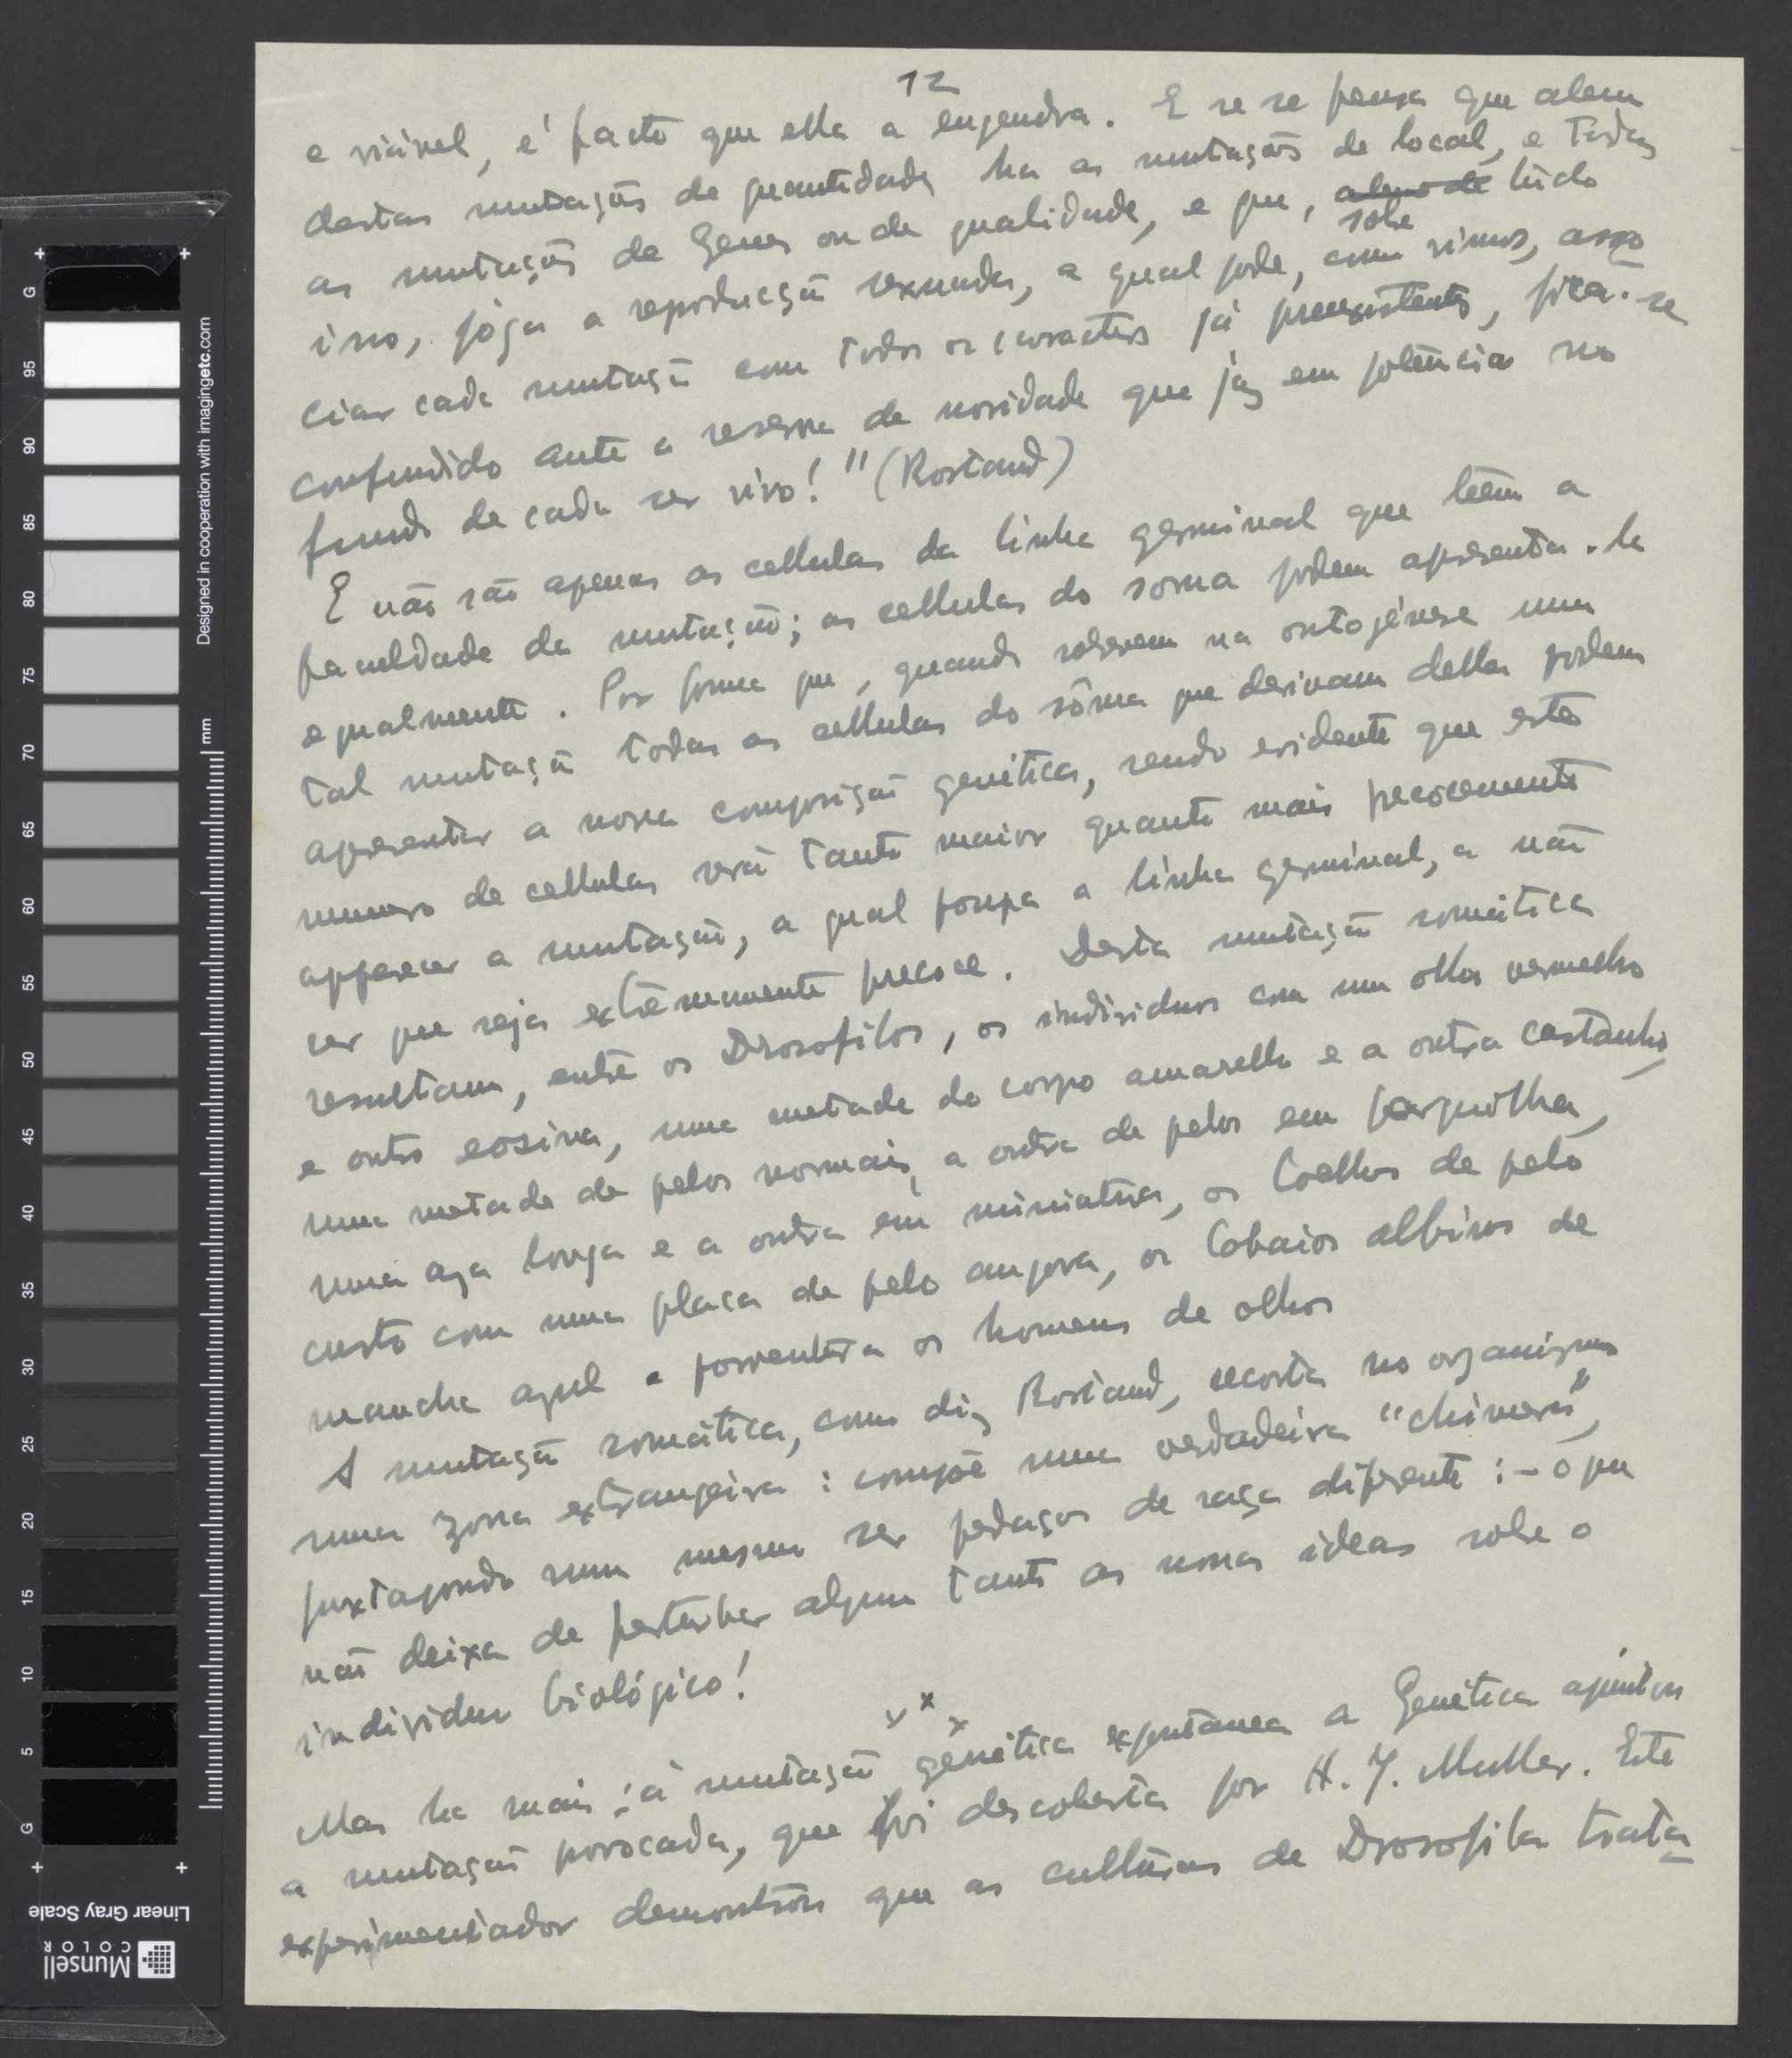 12
e viável, é facto que ella a engendra. E se se pensa que alem
destas mutações de quantidade ha as mutações de local, e todas
as mutações de Genes ou de qualidade, e que, alem de sobre tudo
isso, jóga a reproducção sexuada, a qual pode, como vimos, asso
ciar cada mutação com todos os caracteres já preexistentes, fica-se
confundido ante a reserva de novidade que jaz em potência no
fundo de cada ser vivo!" (Rostand)
E não são apenas as cellulas da linha germinal que teêm a
faculdade da mutação; as cellulas do soma podem apresenta-la
egualmente. Por forma que, quando sobrevem na ontogénese uma
tal mutação todas as cellulas do sôma que derivam della podem
apresentar a nova composição genética, sendo evidente que este
numero de cellulas será tanto maior quanto mais precocemente
apparecer a mutação, a qual poupa a linha germinal, a não
ser que seja extremamente precoce. Desta mutação somática
resultam, entre os Drosofilos, os individuos com um olho vermelho
e outro eosina, uma metade do corpo amarello e a outra castanho,
uma metade de pelos normais, a outra de pelos em forquilha,
uma aza longa e a outra em miniatura, os Coelhos de pelo
curto com uma placa de pelo angora, os Cobaios albinos de
mancha azul e porventura os homens de olhos
A mutação somática, como diz Rostand, recorta no organismo
uma zona extrangeira: compõe uma verdadeira "chimera",
juxtapondo num mesmo ser pedaços de raça diferente: - o que
não deixa de perturbar algum tanto as nossas ideas sobre o
individuo biológico!
x x x
Mas ha mais: á mutação genética espontanea a Genética ajuntou
a mutação provocada, que foi descoberta por H. J. Muller. Este
experimentador demonstrou que as culturas de Drosofila trata
Designed in cooperation with imagingetc.com
mm
G 95 90 85 80 75 70 65 60 55 50 45 40 35 30 25 20 15 10 5 G
Linear Gray Scale
Munsell
COLOR